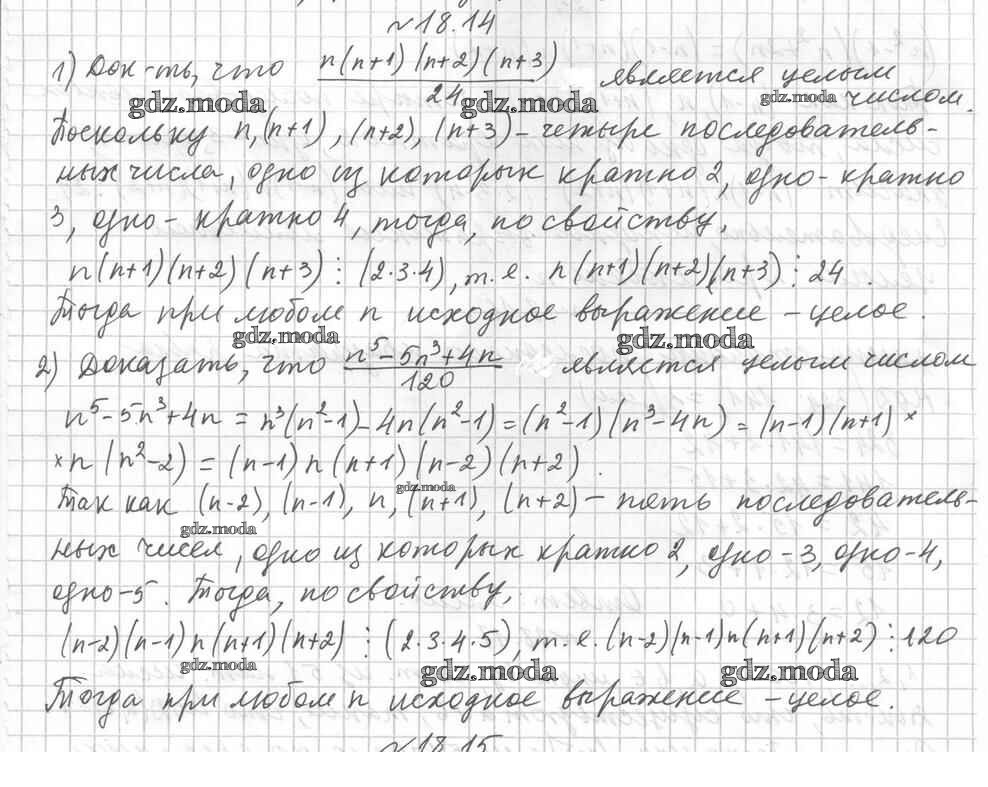 №18.14
1) Док-ть, что n(n+1)(n+2)(n+3)/24 является целым
gdz.moda gdz.moda gdz.moda числом.
Поскольку n, (n+1), (n+2), (n+3) – четыре последователь-
ных числа, одно из которых кратно 2, одно – кратно
3, одно – кратно 4, тогда, по свойству,
n(n+1)(n+2)(n+3) ⋮ (2·3·4), т.е. n(n+1)(n+2)(n+3) ⋮ 24.
Тогда при любом n исходное выражение – целое.
gdz.moda gdz.moda
2) Доказать, что n⁵-5n³+4n/120 является целым числом
n⁵-5n³+4n = n³(n²-1)-4n(n²-1) = (n²-1)(n³-4n) = (n-1)(n+1)×
×n(n²-2) = (n-1)n(n+1)(n-2)(n+2).
gdz.moda
Так как (n-2), (n-1), n, (n+1), (n+2) – пять последователь-
gdz.moda
ных чисел, одно из которых кратно 2, одно – 3, одно – 4,
одно – 5. Тогда, по свойству,
(n-2)(n-1)n(n+1)(n+2) ⋮ (2·3·4·5), т.е. (n-2)(n-1)n(n+1)(n+2) ⋮ 120
gdz.moda gdz.moda gdz.moda
Тогда при любом n исходное выражение – целое.
№18.15